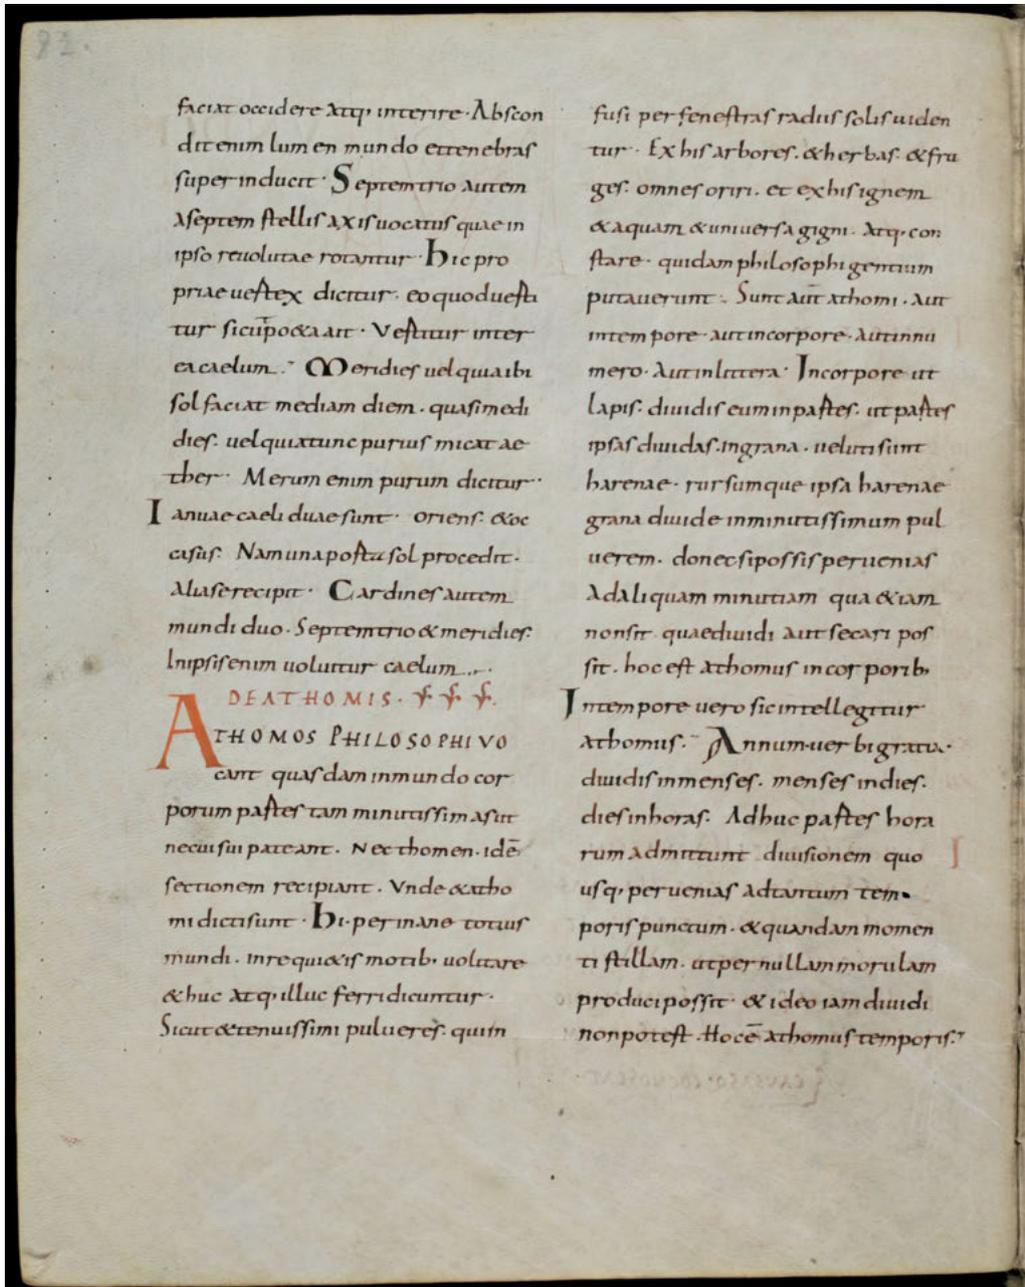 82.
faciat occidere atq; interire · Abscon
dit enim lumen mundo et tenebras
superinducit · Septemtrio autem
aseptem stellis axis uocatus quae in
ipso reuolutae rotantur · hic pro
priae uertex dicitur · eo quod uerti
tur sicut poeta ait · Vertitur inter
ea caelum · Meridies uel quia ibi
sol faciat mediam diem · quasi medi
dies · uel quia tunc purius micat ae
ther · Merum enim purum dicitur ·
Ianuae caeli duae sunt · oriens · & oc
casus · Nam una porta sol procedit ·
Alia se recipit · Cardines autem
mundi duo · Septemtrio & meridies ·
In ipsis enim uoluitur caelum ·
DE ATHOMIS ·
ATHOMOS PHILOSOPHI VO
cant quasdam in mundo cor
porum partes tam minutissimas ut
nec uisui pateant · Nec thomen · idē
sectionem recipiant · Vnde & atho
mi dicti sunt · hi · per inane totius
mundi · inrequi&is motib; uolitare
& huc atq; illuc ferri dicuntur ·
Sicut & tenuissimi pulueres · qui in
fusi per fenestras radiis solis uiden
tur · Ex his arbores · & herbas · & fru
ges · omnes oriri · et ex his ignem
& aquam & uniuersa gigni · Atq; con
stare · quidam philosophi gentium
putauerunt · Sunt aūt athomi · Aut
in tempore · aut in corpore · Aut in nu
mero · Aut in littera · In corpore ut
lapis · diuidis eum in partes · ut partes
ipsas diuidas · in grana · ueluti sunt
harenae · rursumque ipsa harenae
grana diuide in minutissimum pul
uerem · donec si possis peruenias
Ad aliquam minutiam qua &iam
non sit quae diuidi aut secari pos
sit · hoc est athomus in corporib;
In tempore uero sic intellegitur
athomus · Annum · uerbi gratia ·
diuidis in menses · menses in dies ·
dies in horas · Adhuc partes hora
rum admittunt diuisionem quo
usq; peruenias ad tantum tem
poris punctum · & quandam momen
ti stillam · ut per nullam morulam
produci possit · & ideo iam diuidi
non potest · Hoc ē athomus temporis ·